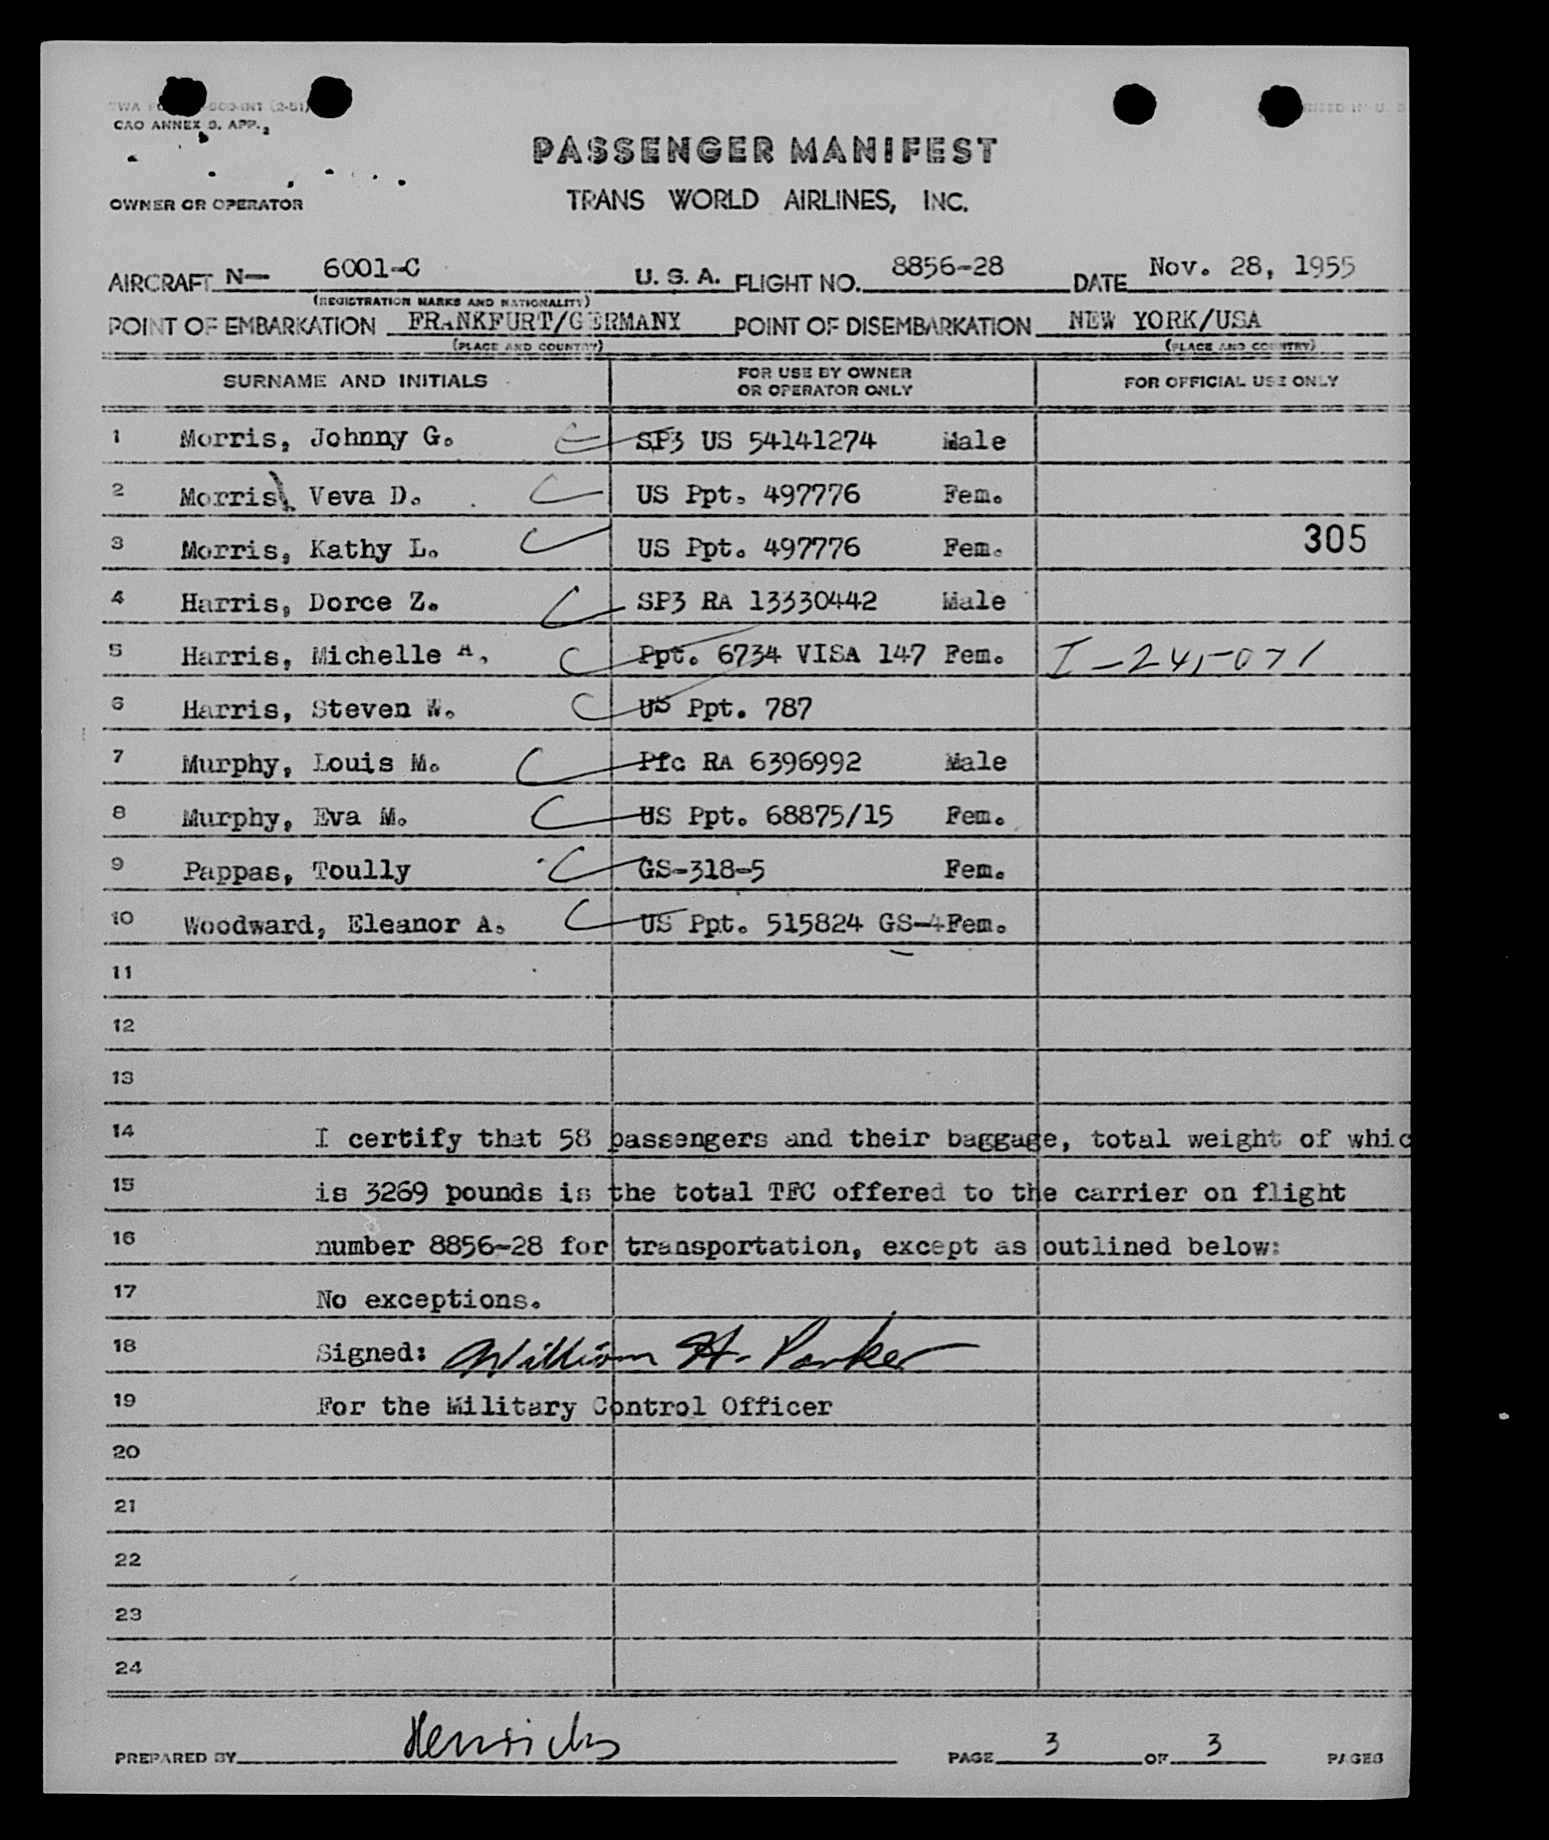 CAO ANNEX 9. APP. 2
PASSENGER MANIFEST
OWNER OR OPERATOR
TRANS WORLD AIRLINES, INC.
AIRCRAFT N— 6001-C U. S. A. FLIGHT NO. 8856-28 DATE Nov. 28, 1955
(REGISTRATION MARKS AND NATIONALITY)
POINT OF EMBARKATION FRANKFURT/GERMANY POINT OF DISEMBARKATION NEW YORK/USA
(PLACE AND COUNTRY) (PLACE AND COUNTRY)
SURNAME AND INITIALS FOR USE BY OWNER OR OPERATOR ONLY FOR OFFICIAL USE ONLY
1 Morris, Johnny G. SP3 US 54141274 Male
2 Morris, Veva D. US Ppt. 497776 Fem.
3 Morris, Kathy L. US Ppt. 497776 Fem. 305
4 Harris, Dorce Z. SP3 RA 13330442 Male
5 Harris, Michelle A. Ppt. 6734 VISA 147 Fem. I-245-071
6 Harris, Steven W. US Ppt. 787
7 Murphy, Louis M. Pfc RA 6396992 Male
8 Murphy, Eva M. US Ppt. 68875/15 Fem.
9 Pappas, Toully GS-318-5 Fem.
10 Woodward, Eleanor A. US Ppt. 515824 GS-4Fem.
11
12
13
14 I certify that 58 passengers and their baggage, total weight of whic
15 is 3269 pounds is the total TFC offered to the carrier on flight
16 number 8856-28 for transportation, except as outlined below:
17 No exceptions.
18 Signed: William H. Parker
19 For the Military Control Officer
20
21
22
23
24
PREPARED BY Henricks PAGE 3 OF 3 PAGES